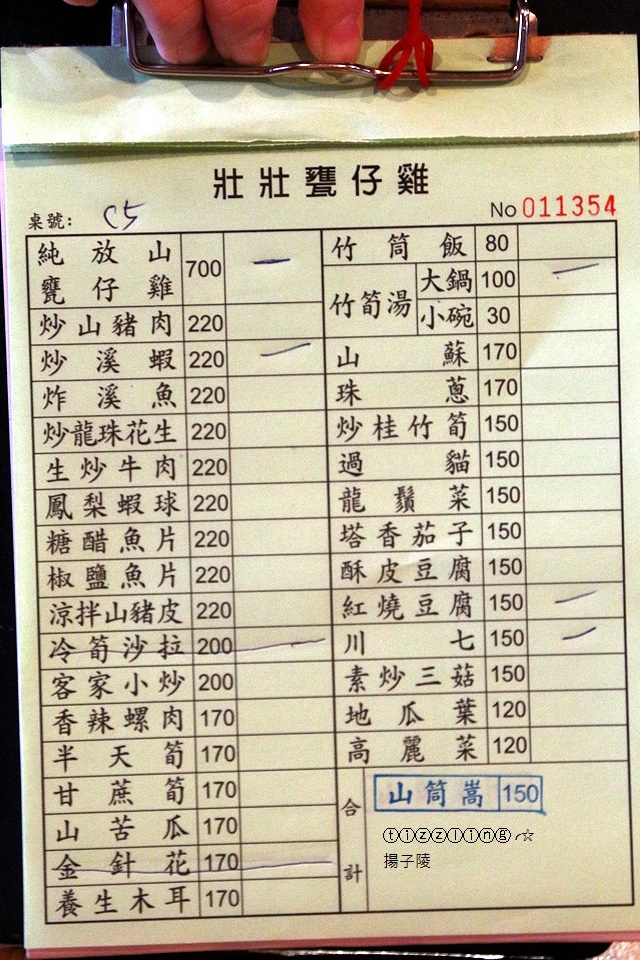 壯壯甕仔雞
桌號: C5
No 011354
純放山甕仔雞 700 一
炒山豬肉 220
炒溪蝦 220 一
炸溪魚 220
炒龍珠花生 220
生炒牛肉 220
鳳梨蝦球 220
糖醋魚片 220
椒鹽魚片 220
涼拌山豬皮 220
冷筍沙拉 200
客家小炒 200
香辣螺肉 170
半天筍 170
甘蔗筍 170
山苦瓜 170
金針花 170
養生木耳 170
竹筒飯 80
竹筍湯 大鍋 100 一
小碗 30
山蘇 170
珠蔥 170
炒桂竹筍 150
過貓 150
龍鬚菜 150
塔香茄子 150
酥皮豆腐 150
紅燒豆腐 150 一
川七 150 一
素炒三菇 150
地瓜葉 120
高麗菜 120
合計
山筒嵩 150
ⓣⓘⓩⓩⓛⓘⓝⓖ╭☆
揚子陵